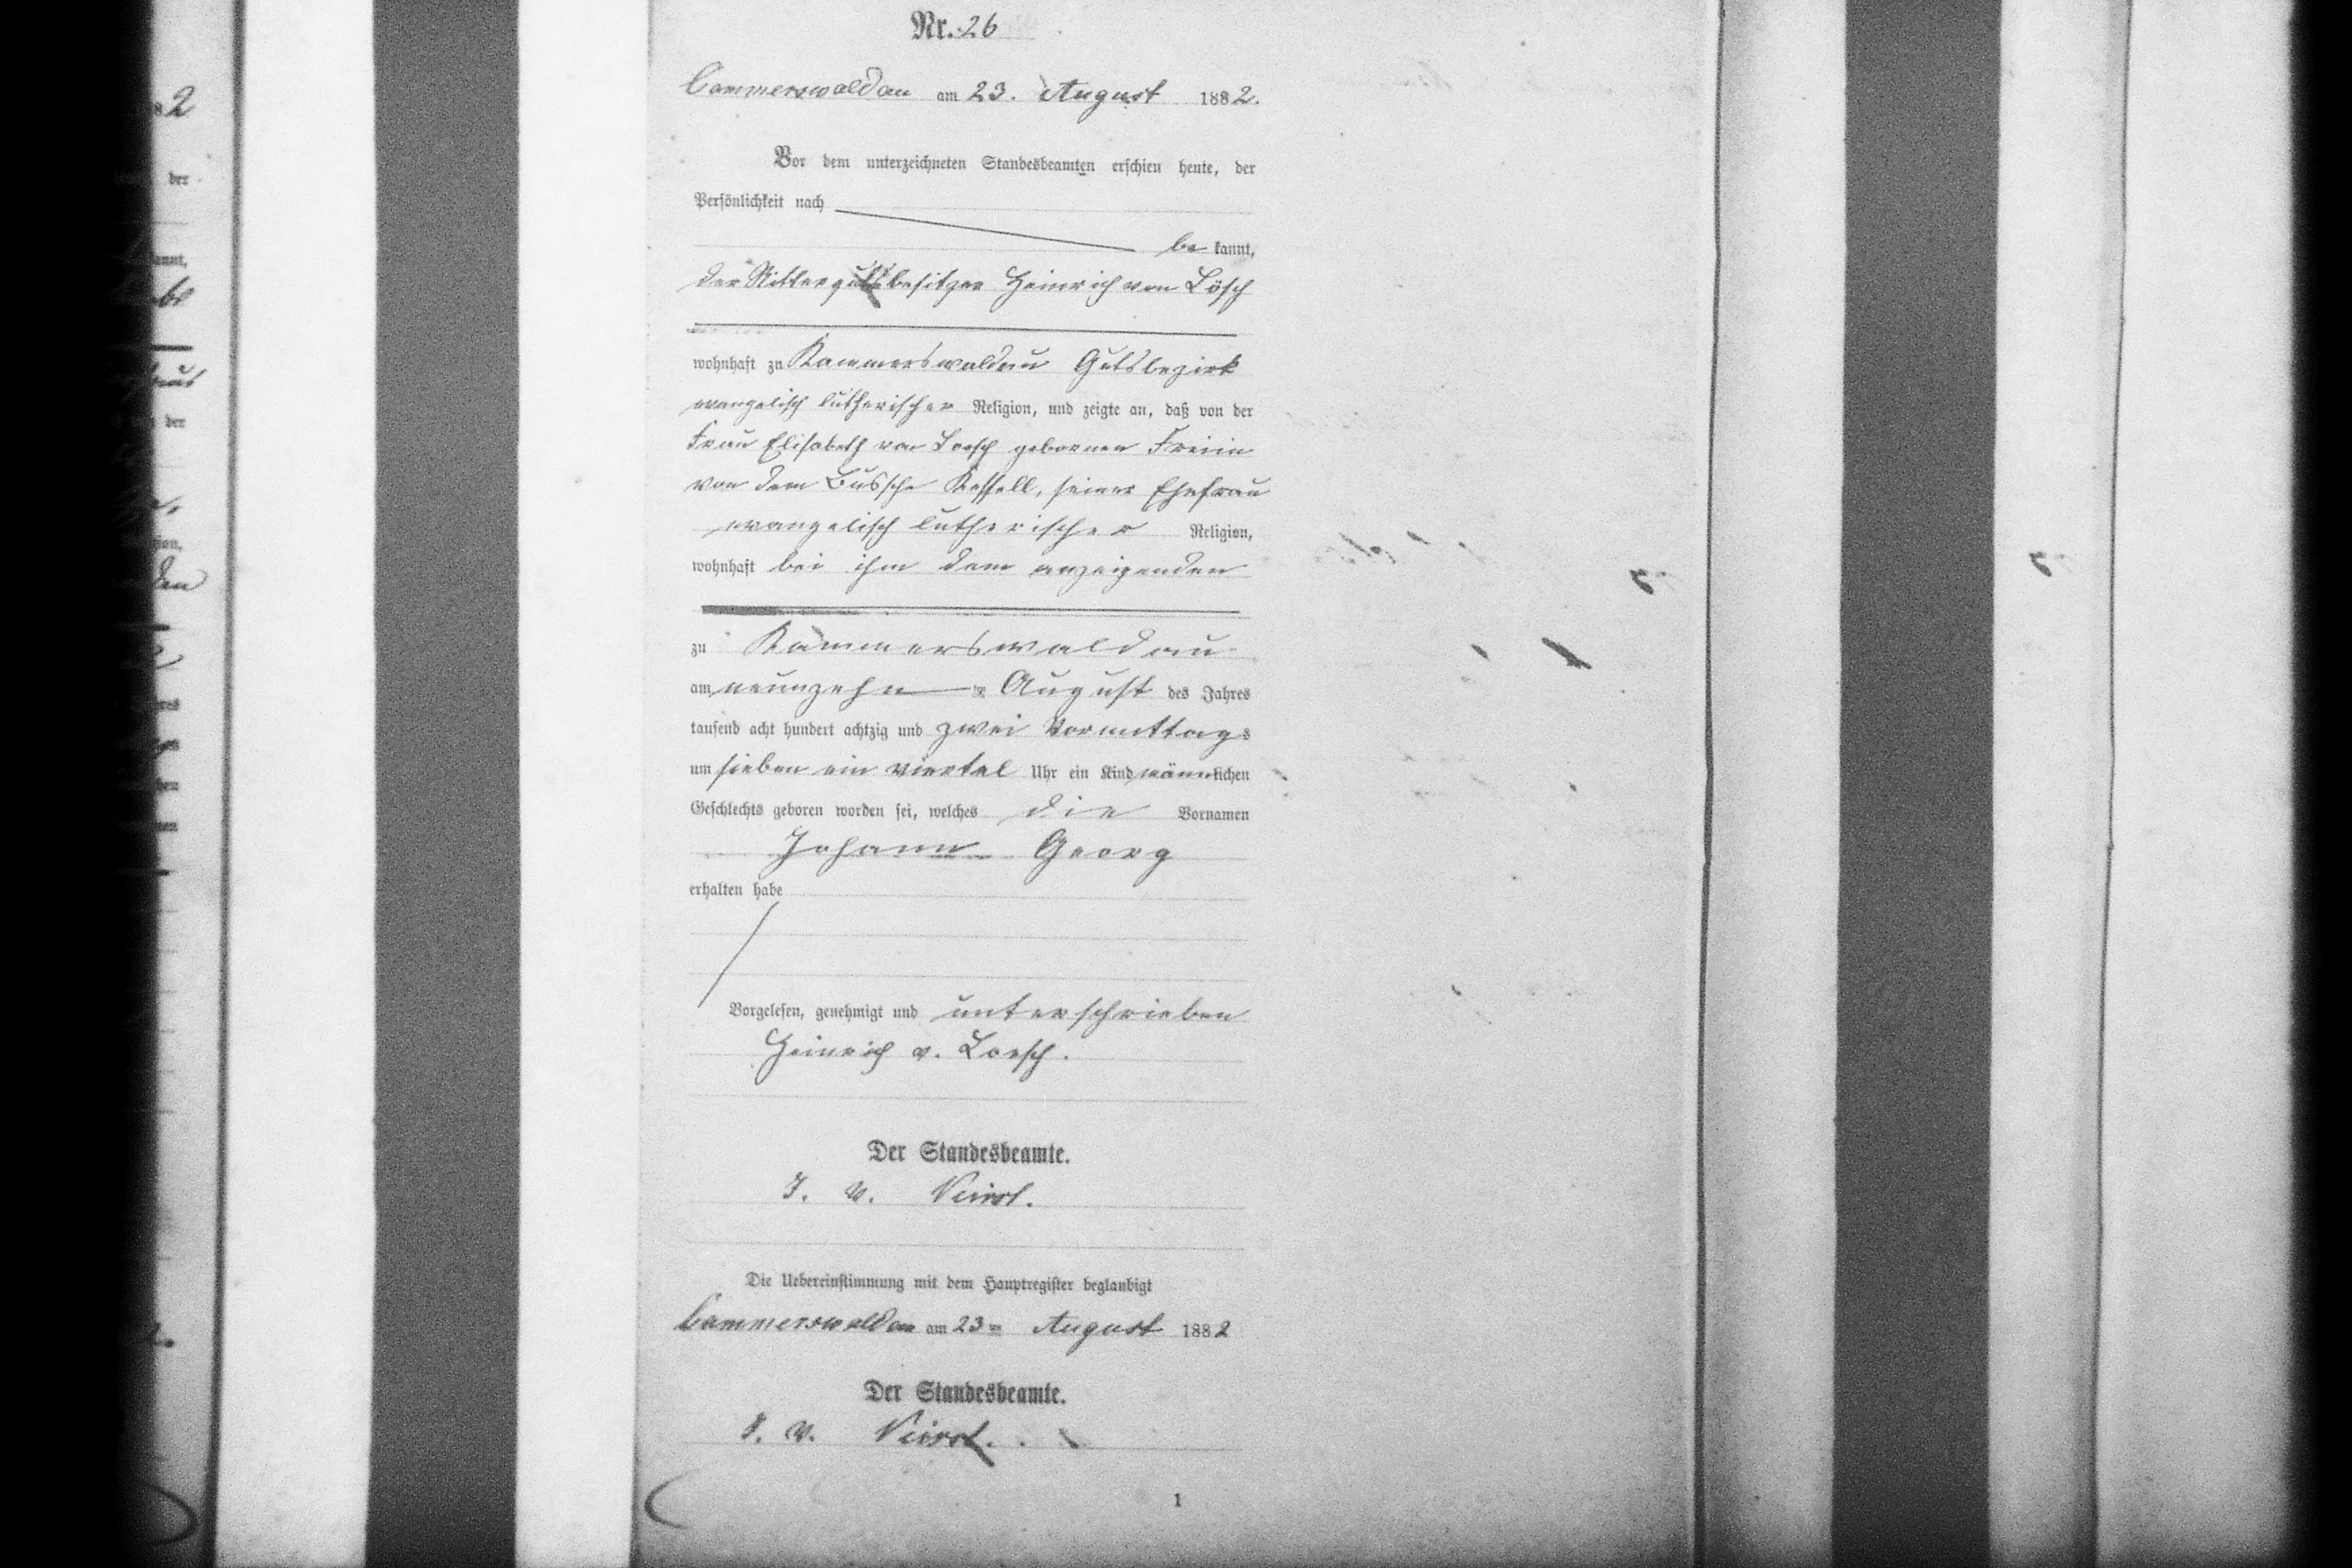 Nr. 26
Cammerswaldau am 23. August 1882.
Vor dem unterzeichneten Standesbeamten erschien heute, der
Persönlichkeit nach
be kannt,
der Rittergutsbesitzer Heinrich von Lösch
wohnhaft zu Kammerswaldau Gutsbezirk
evangelisch lutherischer Religion, und zeigte an, daß von der
Frau Elisabeth von Loesch gebornen Freiin
von dem Bussche Kessell, seiner Ehefrau
evangelisch lutherischer Religion,
wohnhaft bei ihm dem anzeigenden
zu Kammerswaldau
am neunzehn August des Jahres
tausend acht hundert achtzig und zwei Vormittags
um sieben ein viertel Uhr ein Kind männlichen
Geschlechts geboren worden sei, welches die Vornamen
Johann Georg
erhalten habe
Vorgelesen, genehmigt und unterschrieben
Heinrich v. Loesch.
Der Standesbeamte.
I. V.
Die Uebereinstimmung mit dem Hauptregister beglaubigt
Cammerswaldau am 23 August 1882
Der Standesbeamte.
I. V.
1